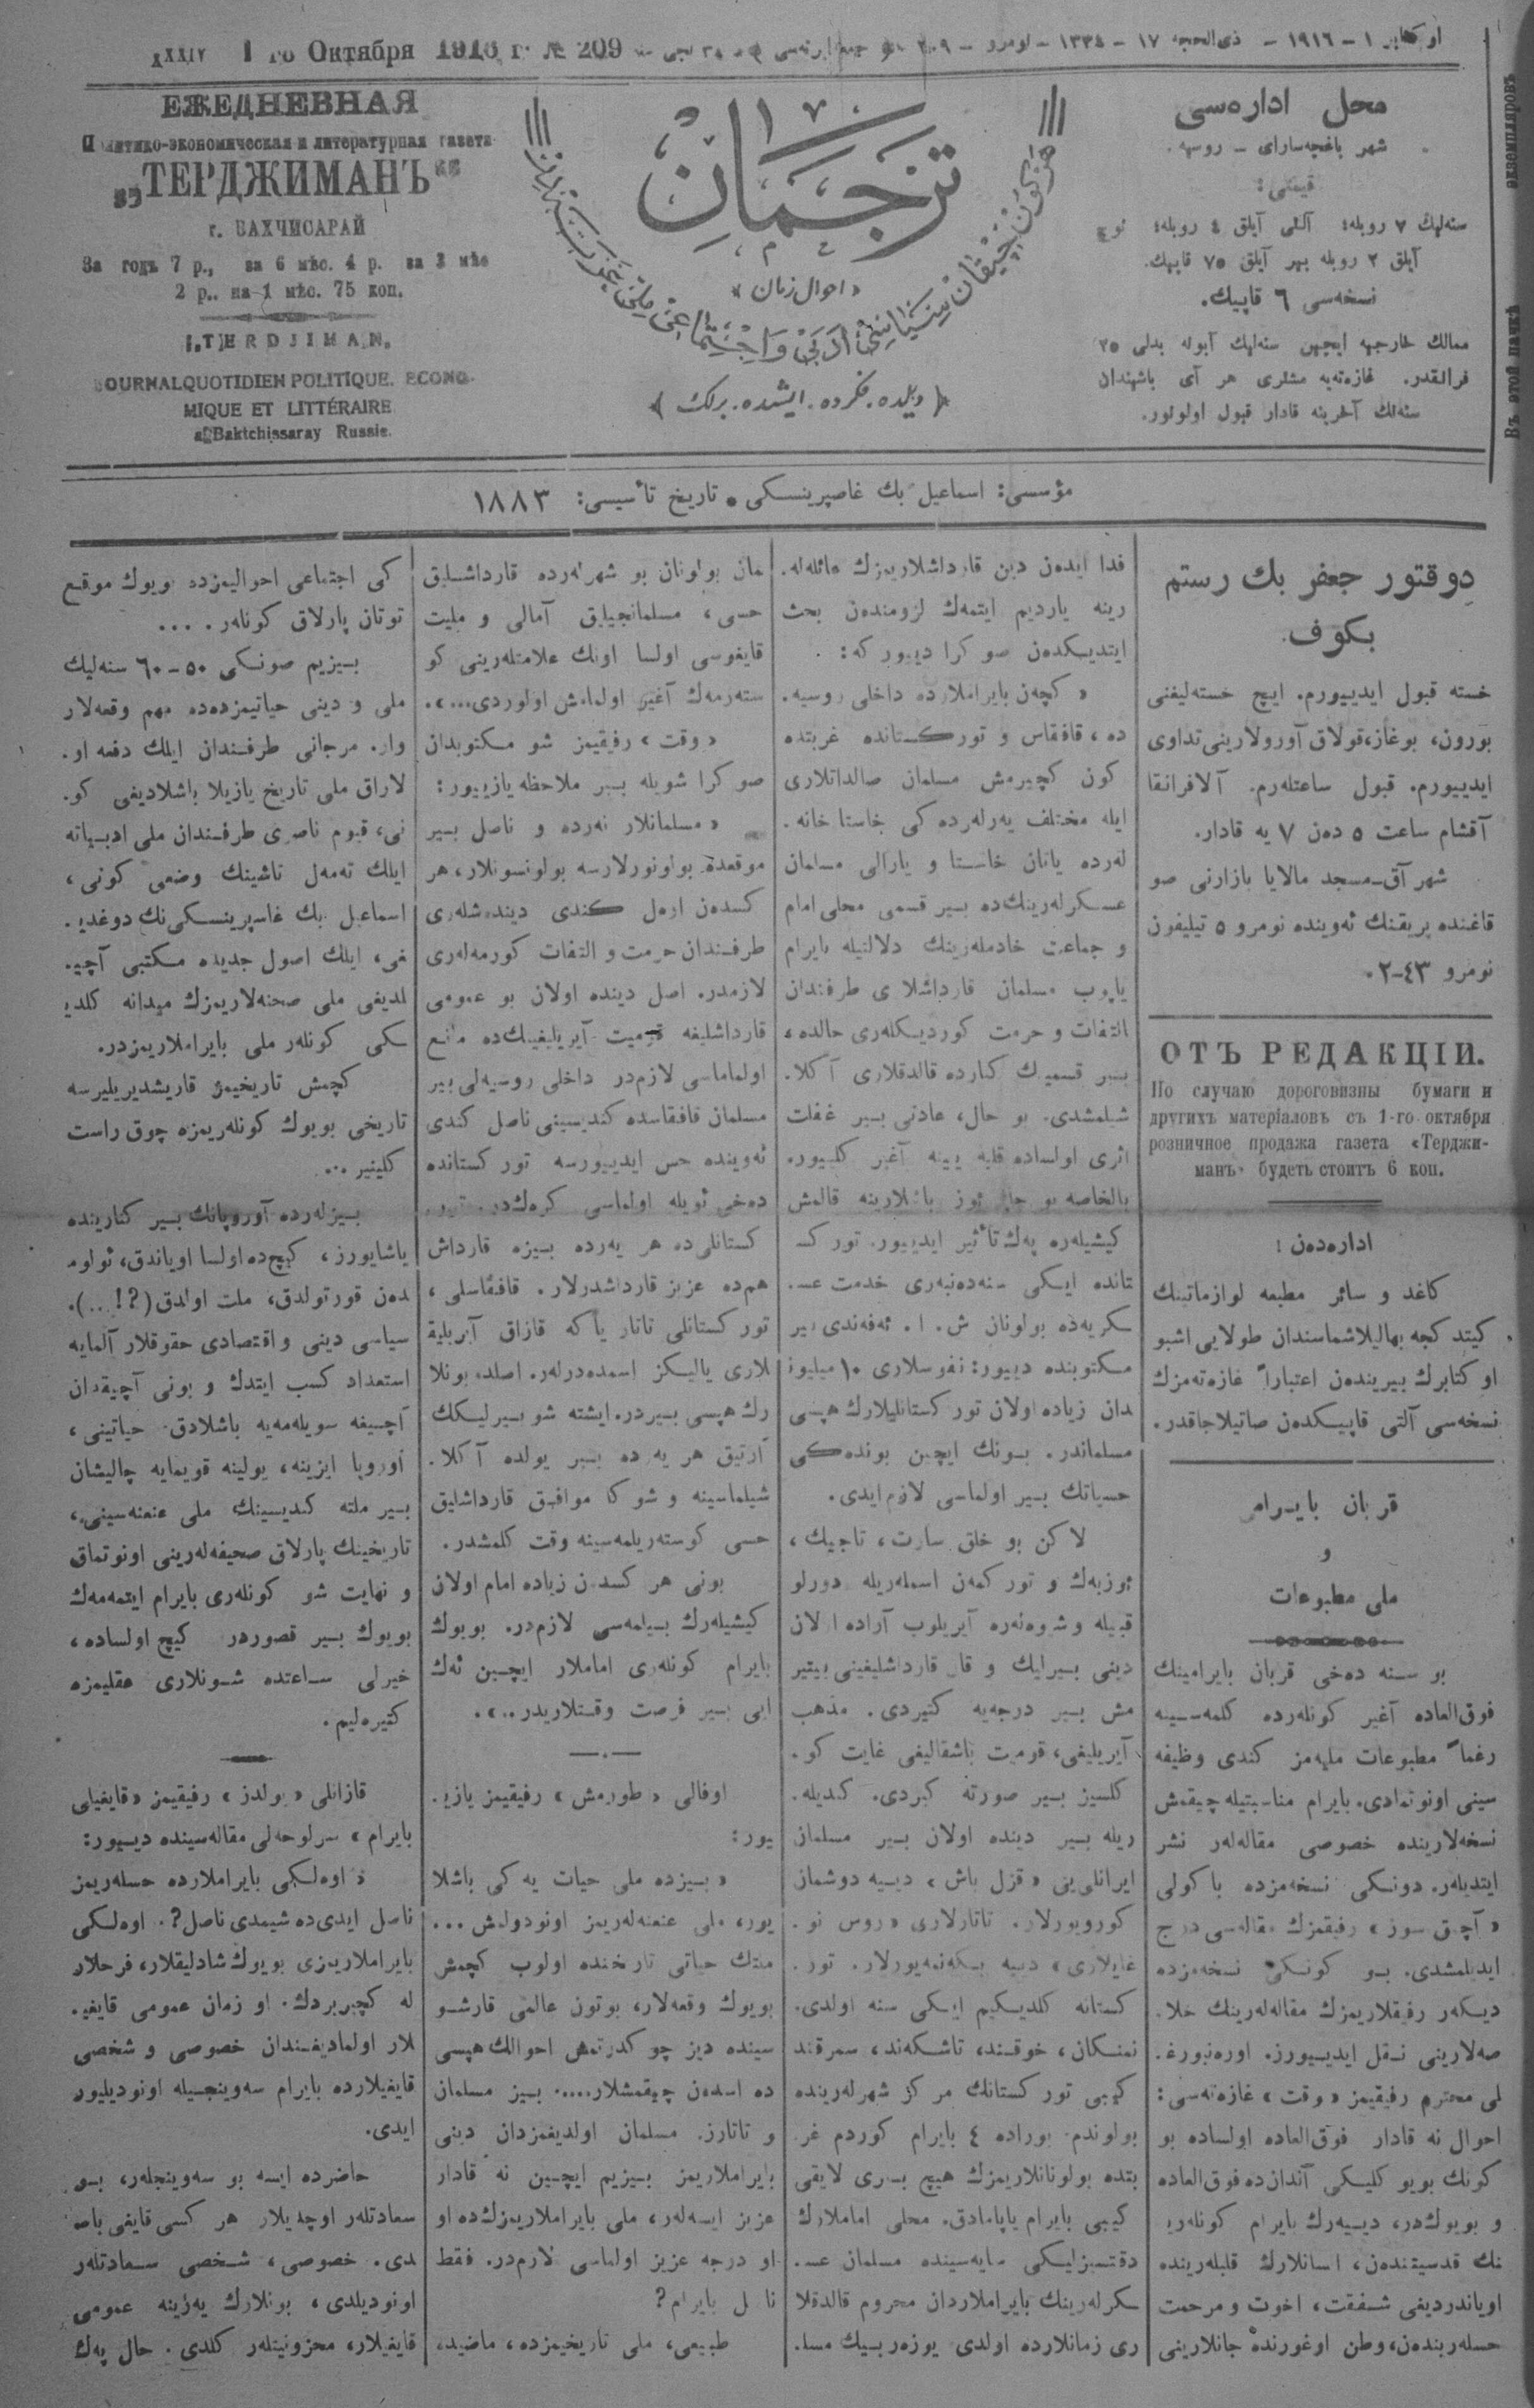 XXXIV 1 го Октября 1916 г. № 209
اوکتابر ١ – ١٩١٦ – ذی‌الحجه ١٧ – ١٣٣٤ – نومرو – ٢٠٩
ЕЖЕДНЕВНАЯ
Политико-экономическая и литературная газета
„ТЕРДЖИМАНЪ“
г. БАХЧИСАРАЙ
За годъ 7 р., за 6 мѣс. 4 р. за 3 мѣс
2 р.. на 1 мѣс. 75 коп.
„TERDJIMAN„
JOURNAL QUOTIDIEN POLITIQUE. ECONO-
MIQUE ET LITTÉRAIRE
à Baktchissaray Russie.
ترجمان
« احوال زمان »
« دیلده . فکرده . ایشده . برلك »
محل اداره‌سی
شهر باغچه‌سارای – روسیه .
قیمتی :
سنه‌لیك ٧ روبله؛ آلتی آیلق ٤ روبله؛ اوچ
آیلق ٢ روبله بیر آیلق ٧٥ قاپیك.
نسخه‌سی ٦ قاپیك.
ممالك خارجیه ایچین سنه‌لیك آبونه بدلی ٢٥
فرانقدر. غازه‌ته‌یه مشتری هر آی باشیندان
سنه‌نك آخرینه قادار قبول اولونور.
Въ этой пачкѣ экземпляровъ
مؤسسی: اسماعیل بك غاصپرینسکی • تاریخ تأسیسی: ١٨٨٣
دوقتور جعفر بك رستم
بکوف.
خسته قبول ایدییورم. ایچ خسته‌لیغنی
بورون، بوغاز،قولاق آورولارینی تداوی
ایدییورم. قبول ساعتلەرم. آلافرانقا
آقشام ساعت ٥ دەن ٧ یه قادار.
شهر آق‌مسجد مالایا بازارنی صو
قاغنده پریقنك ئەوینده نومرو ٥ تیلیفون
نومرو ٤٣–٢٠
ОТЪ РЕДАКЦІИ.
По случаю дороговизны бумаги и
другихъ матеріаловъ съ 1-го октября
розничное продажа газета «Терджи-
манъ» будетъ стоитъ 6 коп.
ادارەدەن :
کاغد و سائر مطبعه لوازماتینك
کیتد کجه بهالیلاشماسندان طولایی اشبو
اوکتابرك بیریندەن اعتباراً غازەتەمزك
نسخه‌سی آلتی قاپیکدەن صاتیلاجاقدر.
قربان بایرام
و
ملی مطبوعات
بو سنه دەخی قربان بایرامینك
فوق‌العاده آغیر کونلەرده کلمەسینه
رغماً مطبوعات ملیه‌مز کندی وظیفه
سینی اونوتمادی. بایرام مناسبتیله چیقمش
نسخه‌لارینده خصوصی مقاله‌لەر نشر
ایتدیلەر. دونکی نسخه‌مزده باکولی
« آچیق سوز » رفیقمزك مقاله‌سی درج
ایدیلمشدی. بو کونکی نسخه‌مزده
دیکەر رفیقلاریمزك مقاله‌لەرینك خلا.
صه‌لارینی نقل ایدییورز. اورەنبورغ.
لی محترم رفیقیمز « وقت » غازەتەسی :
احوال نه قادار فوق‌العاده اولساده بو
کونك بویو کلیکی آندان‌ده فوق‌العاده
و بویوك‌در، دییەرك بایرام کونلەری
نك قدسیتندەن، انسانلارك قلبلەرینده
اویاندردیغی شفقت، اخوت و مرحمت
حسلەریندەن، وطن اوغورنده جانلارینی
فدا ایدەن دین قارداشلاریمزك عائله‌لە.
رینه یاردیم ایتمەك لزومندەن بحث
ایتدیکدەن صو کرا دییور که :
« کچەن بایراملارده داخلی روسیه.
ده، قافقاس و تورکستانده غربتده
کون کچیرمش مسلمان صالداتلاری
ایله مختلف یەرلەرده کی خاستا خانه.
لەرده یاتان خاستا و یارالی مسلمان
عسکرلەرینك‌ده بیر قسمی محلی امام
و جماعت خادملەرینك دلالتیله بایرام
یاپوب مسلمان قارداشلاری طرفندان
التفات و حرمت کوردیکلەری حالده،
بیر قسمینك کنارده قالدقلاری آکلا.
شیلمشدی. بو حال، عادتی بیر غفلت
اثری اولساده قلبه یینه آغیر کلییور.
بالخاصه بو حال ئوز باشلارینه قالمش
کیشیلەره پەك تأثیر ایدییور. تورکس
تانده ایکی سنەدەنبەری خدمت عسـ
کریەده بولونان ش. ا. ئەفەندی بیر
مکتوبنده دییور: نفوسلاری ١٠ میلیو
ندان زیاده اولان تورکستانلیلارك هپسی
مسلماندر. بونك ایچین بوندەکی
حسیاتك بیر اولماسی لازم ایدی.
لاکن بو خلق سارت، تاجیك،
ئوزبەك و تورکمەن اسملەریله دورلو
قبیله و شوەنەره آیریلوب آراده اولان
دینی بیرلیك و قان قارداشلیغینی بیتیر
مش بیر درجەیه کتیردی. مذهب
آیریلیغی، قومیت باشقالیغی غایت کو.
کلسیز بیر صورته کیردی. کندیلە.
ریله بیر دینده اولان بیر مسلمان
ایرانلی‌یی « قزل باش » دییه دوشمان
کورویورلار. تاتارلاری « روس نو.
غایلاری » دییه بکەنمەیورلار. تور.
کستانه کلدیکیم ایکی سنه اولدی.
نمنکان، خوقند، تاشکەند، سمرقند
کیبی تورکستانك مرکز شهرلەرینده
بولوندم. بوراده ٤ بایرام کوردم غر.
بتده بولونانلاریمزك هیچ بیری لایقی
کیبی بایرام یاپامادق. محلی اماملارك
دقتسزلیکی سایەسینده مسلمان عسـ
کرلەرینك بایراملاردان محروم قالدقلا
ری زمانلارده اولدی یوزەربییك مسلـ
مان بولونان بو شهرلەرده قارداشلق
حسی، مسلمانجیلیق آمالی و ملیت
قایغوسی اولسا اونك علامتلەرینی کو
ستەرمەك آغیر اولمامش اولوردی...».
« وقت » رفیقیمز شو مکتوبدان
صوکرا شویله بیر ملاحظه یازییور :
« مسلمانلار نەرده و ناصل بیر
موقعده بولونورلارسه بولونسونلار، هر
کسدەن اول کندی دیندەشلەری
طرفندان حرمت و التفات کورمەلەری
لازمدر. اصل دینده اولان بو عمومی
قارداشلیغه قومیت آیریلیغینك‌ده مانع
اولماماسی لازم‌در داخلی روسیه‌لی بیر
مسلمان قافقاسده کندیسینی ناصل کندی
ئەوینده حس ایدییورسه تورکستانده
دەخی ئویله اولماسی کرەك‌در. تور.
کستانلی‌ده هر یەرده بیزه قارداش
هم‌ده عزیز قارداشدرلار. قافقاسلی،
تورکستانلی تاتار یاکه قازاق آیریلیق
لاری یالیکز اسمدەدرلەر. اصلده بونلا
رك هپسی بیردر. ایشته شو بیرلیکك
آرتیق هر یەرده بیر یولده آکلا.
شیلماسینه و شوکا موافق قارداشلیق
حسی کوستەریلمەسینه وقت کلمشدر.
بونی هر کسدەن زیاده امام اولان
کیشیلەرك بیلمەسی لازم‌در. بویوك
بایرام کونلەری اماملار ایچین ئەك
ایی بیر فرصت وقتلاریدر..».
اوفالی « طورمش » رفیقیمز یازی.
یور :
« بیزده ملی حیات یەکی باشلا
یور، ملی عنعنه‌لەریمز اونودولمش ...
ملتك حیاتی تارخنده اولوب کچمش
بویوك وقعه‌لار، بوتون عالمی قارشو
سینده دیز چوکدرتمش احوالك هپسی
ده اسدەن چیقمشلار.... بیز مسلمان
و تاتارز. مسلمان اولدیغمزدان دینی
بایراملاریمز بیزیم ایچین نه قادار
عزیز ایسەلەر، ملی بایراملاریمزك‌ده او
او درجه عزیز اولماسی لازم‌در. فقط
ناصل بایرام؟
طبیعی، ملی تاریخیمزده، ماضیده
کی اجتماعی احوالیمزده بویوك موقع
توتان پارلاق کونلەر. ...
بیزیم صونکی ٥٠–٦٠ سنەلیك
ملی و دینی حیاتیمزدەده مهم وقعه‌لار
وار. مرجانی طرفندان ایلك دفعه او.
لاراق ملی تاریخ یازیلا باشلادیغی کو.
نی، قیوم ناصری طرفندان ملی ادبیاته
ایلك تەمەل تاشینك وضعی کونی،
اسماعیل بك غاسپرینسکی‌نك دوغدیـ
غی، ایلك اصول جدیده مکتبی آچیـ
لدیغی ملی صحنەلاریمزك میدانه کلدیـ
کی کونلەر ملی بایراملاریمزدر.
کچمش تاریخیمز قاریشدیریلیرسه
تاریخی بویوك کونلەریمزه چوق راست
کلینیر ...
بیزلەرده آوروپانك بیر کنارینده
یاشایورز، کیچ‌ده اولسا اویاندق، ئولومـ
دەن قورتولدق، ملت اولدق (?!...).
سیاسی دینی و اقتصادی حقوقلار آلمایه
استعداد کسب ایتدك و بونی آچیقدان
آچیغه سویلەمەیه باشلادق. حیاتینی،
آوروپا ایزینه، یولینه قویمایه چالیشان
بیر ملته کندیسینك ملی عنعنەسینی،
تاریخینك پارلاق صحیفه‌لەرینی اونوتماق
و نهایت شو کونلەری بایرام ایتمەمەك
بویوك بیر قصوردر کیچ اولساده،
خیرلی ساعتده شونلاری عقلیمزه
کتیرەلیم.
قازانلی « یولدز » رفیقیمز « قایغیلی
بایرام » سرلوحه‌لی مقاله‌سینده دییور :
« اوەلکی بایراملارده حسلەریمز
ناصل ایدی‌ده شیمدی ناصل؟. اوەلکی
بایراملاریمزی بویوك شادلیقلار، فرحلار
له کچیریردك. او زمان عمومی قایغیـ
لار اولمادیغندان خصوصی و شخصی
قایغیلارده بایرام سەوینجیله اونودیلیور
ایدی.
حاضرده ایسه بو سەوینجلەر، بو
سعادتلەر اوچدیلار هر کسی قایغی باصـ
دی. خصوصی، شخصی سعادتلەر
اونودیلدی، بونلارك یەرینه عمومی
قایغیلار، محزونیتلەر کلدی. حال پەك